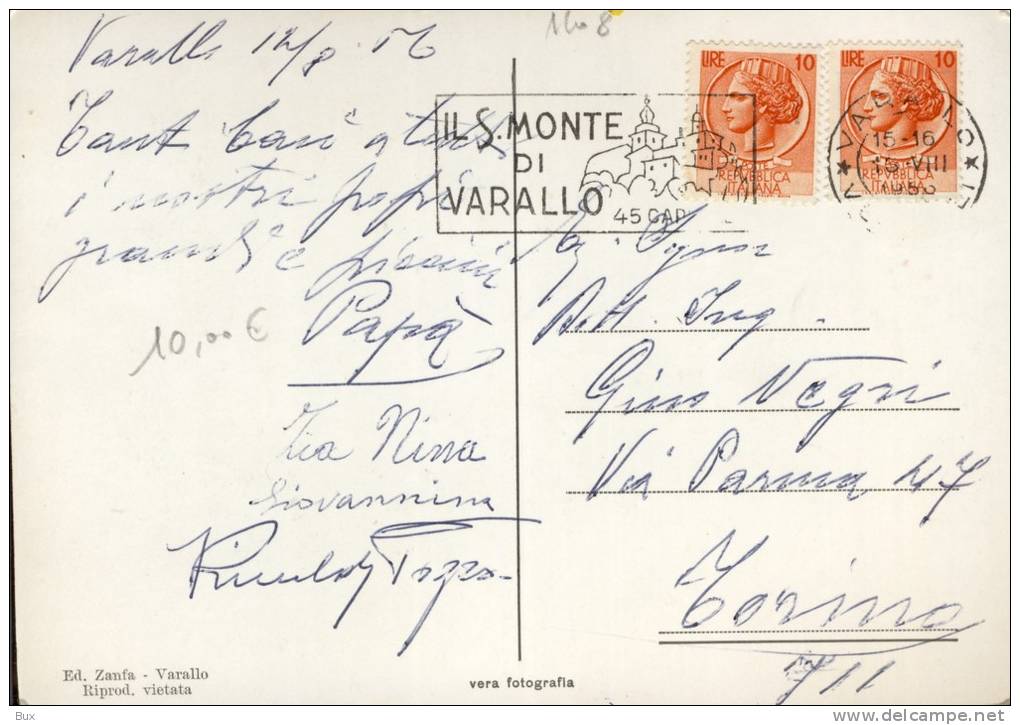 1608
Varallo 12/8 56
Tanti baci a tutti
i nostri popi
grandi e piccini
Papà
10,00 €
Zia Nina
Giovannina
Pozzo
IL S. MONTE
DI
VARALLO
45 CAP
LIRE 10
POSTE
REPUBBLICA
ITALIANA
LIRE 10
REPUBBLICA
ITALIANA
VARALLO
15-16
15 VIII
Dott. Ing.
Gino Negri
Via Parma 47
Torino
711
Ed. Zanfa - Varallo
Riprod. vietata
vera fotografia
Bux
www.delcampe.net